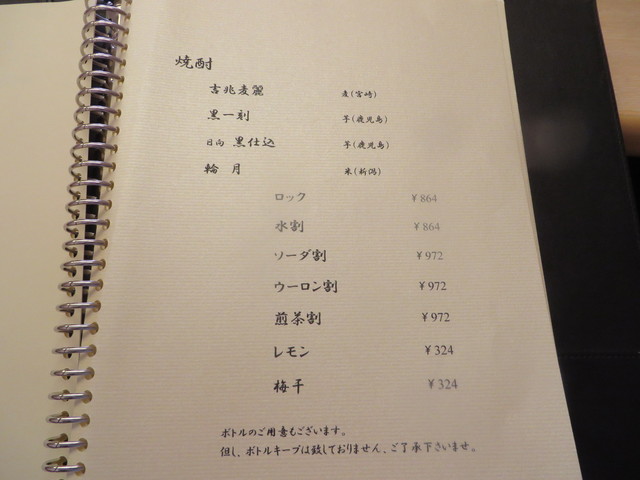 焼酎
吉兆麦麗 麦(宮崎)
黒一刻 芋(鹿児島)
日向 黒仕込 芋(鹿児島)
輪月 米(新潟)
ロック ¥864
水割 ¥864
ソーダ割 ¥972
ウーロン割 ¥972
煎茶割 ¥972
レモン ¥324
梅干 ¥324
ボトルのご用意もございます。
但し、ボトルキープは致しておりません、ご了承下さいませ。